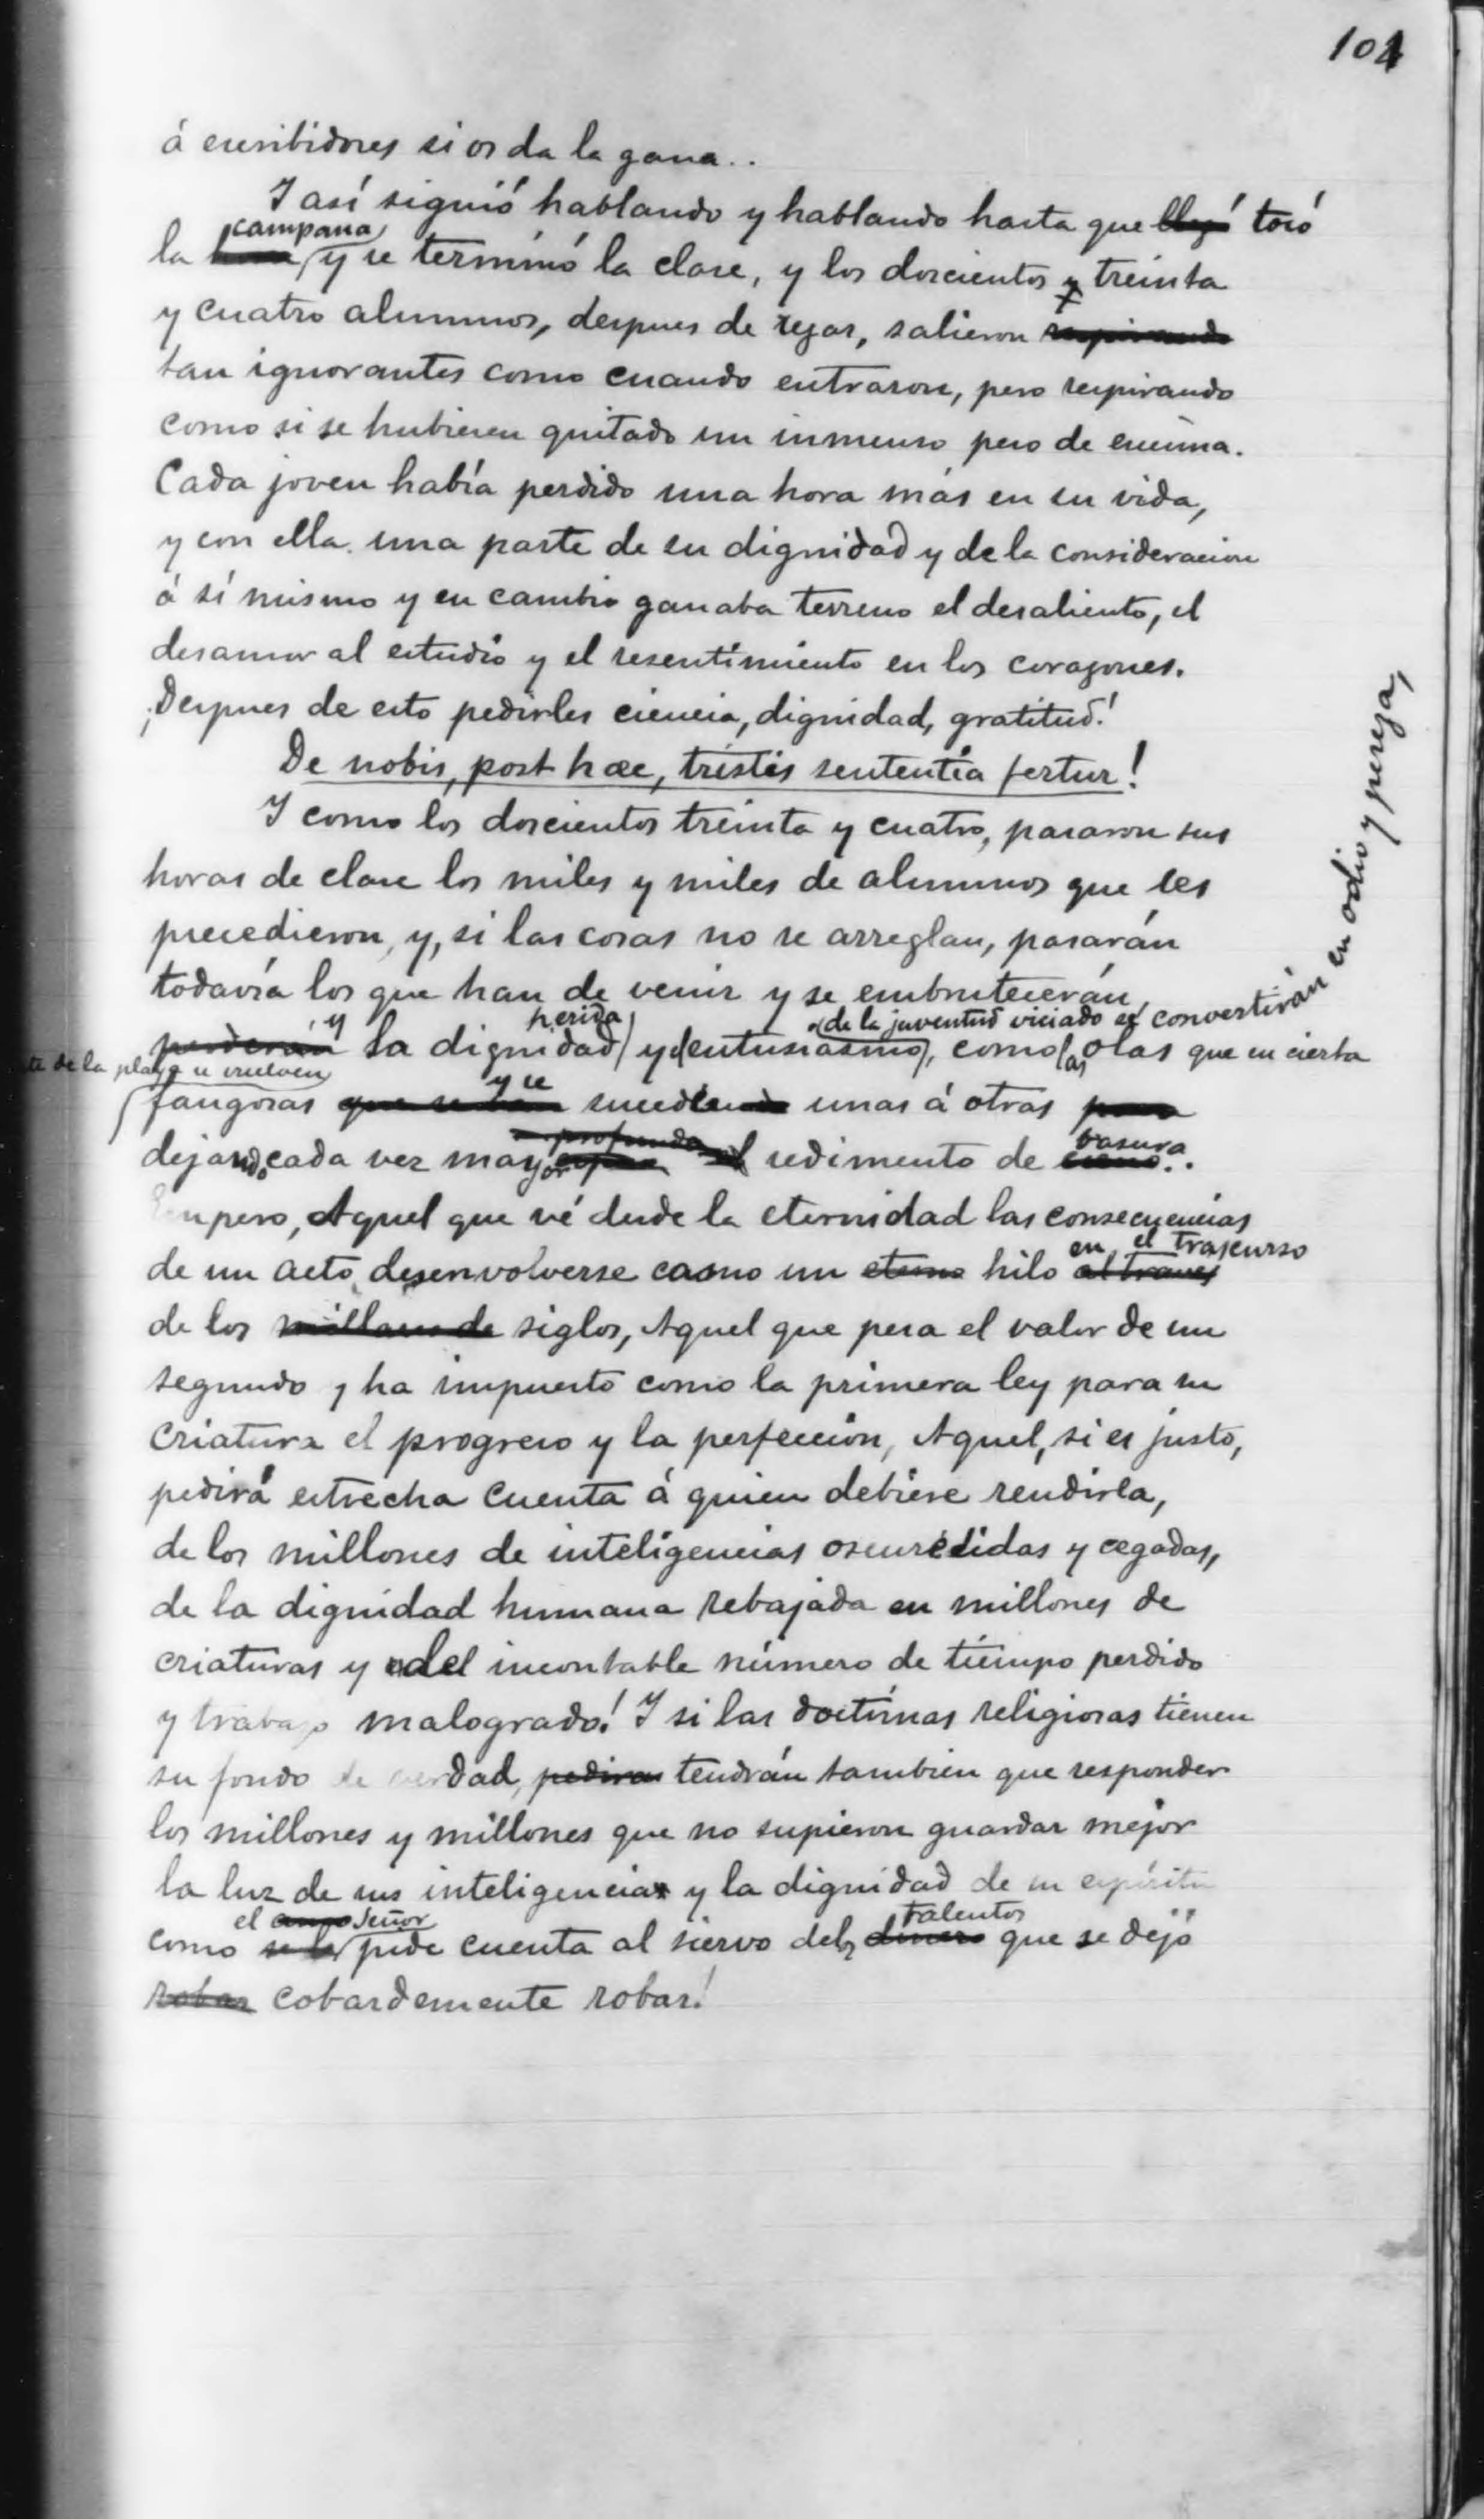 104
á escribidores si os da la gana..
Y así siguió hablando y hablando hasta que llegó tocó
campana
la hora y se terminó la clase, y los doscientos y treinta
y cuatro alumnos, despues de rezar, salieron respirando
tan ignorantes como cuando entraron, pero respirando
como si se hubiesen quitado un inmenso peso de encima.
Cada joven había perdido una hora más en su vida,
y con ella una parte de su dignidad y de la consideracion
á sí mismo y en cambio ganaba terreno el desaliento, el
desamor al estudio y el resentimiento en los corazones.
¡Despues de esto pedirles ciencia, dignidad, gratitud!
De nobis, post hæc, tristis sententia fertur!
Y como los doscientos treinta y cuatro, pasaron sus
horas de clase los miles y miles de alumnos que les
precedieron, y, si las cosas no se arreglan, pasarán
todavía los que han de venir y se embrutecerán,
y herida de la juventud viciado se convertirán en odio y pereza,
perderán la dignidad y el entusiasmo, como las olas que en cierta
te de la playa se vuelven
y se
fangosas que se van sucediendo unas á otras para
profunda basura
dejando cada vez mayor el sedimento de cieno..
Empero, Aquel que vé desde la eternidad las consecuencias
en el trascurso
de un acto desenvolverse como un eterno hilo al traves
de los millares de siglos, Aquel que pesa el valor de un
segundo y ha impuesto como la primera ley para su
criatura el progreso y la perfección, Aquel, si es justo,
pedirá estrecha cuenta á quien debiere rendirla,
de los millones de inteligencias oscurecidas y cegadas,
de la dignidad humana rebajada en millones de
criaturas y del incontable número de tiempo perdido
y trabajo malogrado! Y si las doctrinas religiosas tienen
su fondo de verdad, pediran tendrán tambien que responder
los millones y millones que no supieron guardar mejor
la luz de sus inteligencias y la dignidad de su espíritu
el amo Señor talentos
como se le pide cuenta al siervo del dinero que se dejó
robar cobardemente robar!